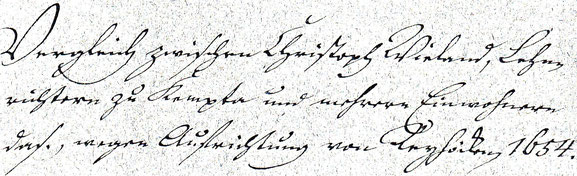 Vergleich zwischen Christoph Wieland, Lehn-
richtern zu Kempta und mehrern Einwohnern
das., wegen Aufrichtung von 1654.